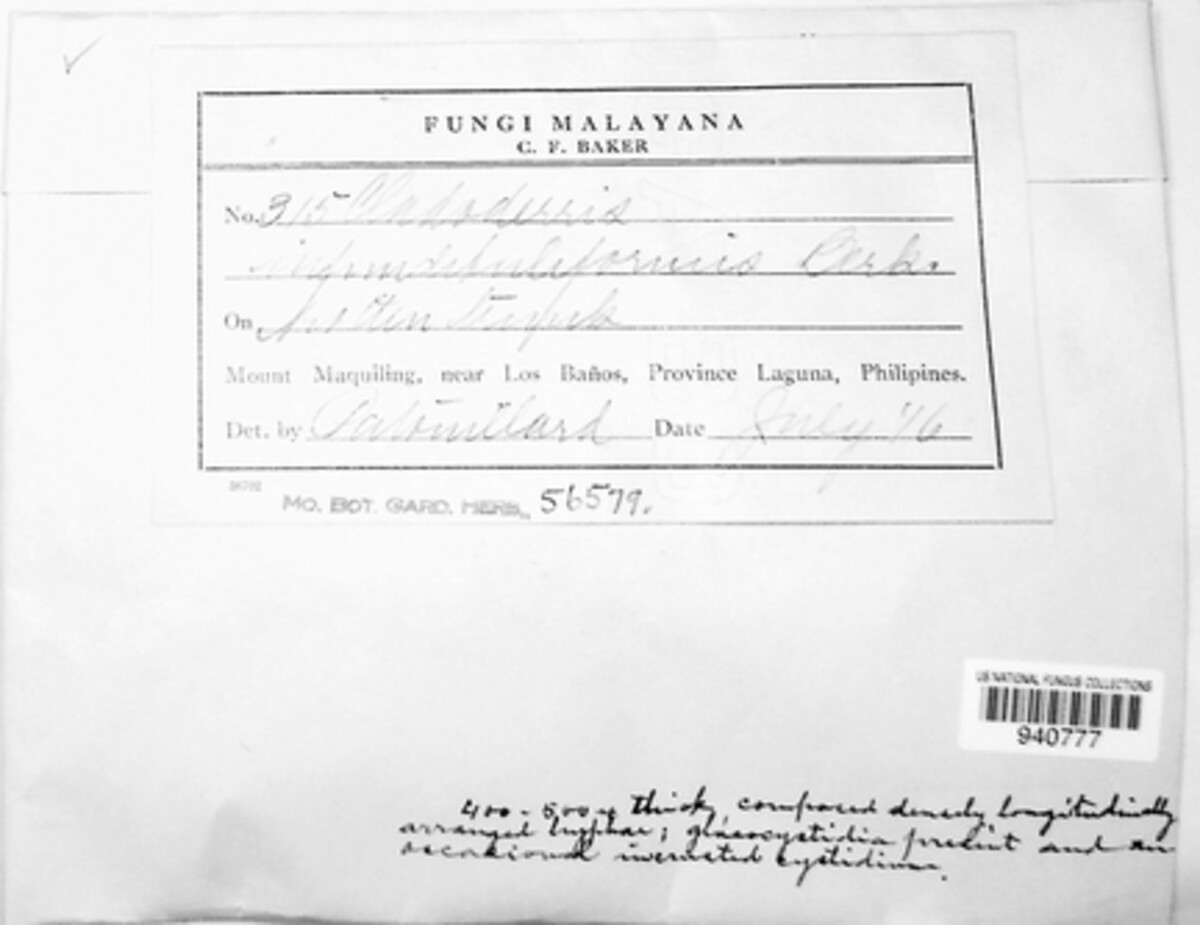 FUNGI MALAYANA
C. F. BAKER
No. 315 Cladoderris
infundibuliformis Berk.
On rotten
Mount Maquiling, near Los Baños, Province Laguna, Philipines.
Det. by Patouillard Date July '16
MO. BOT. GARD. HERB. 56579.
US NATIONAL FUNGUS COLLECTIONS
940777
400-500 μ thick, composed densely longitudinally
arranged hyphae; gloeocystidia present and an
occasional incrusted cystidium.